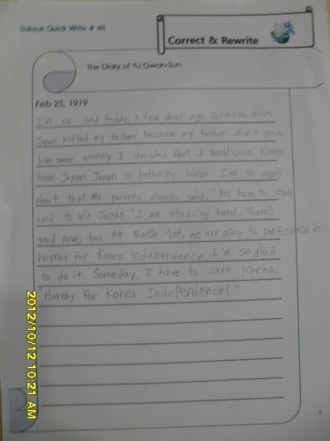 Suksuk Quick Write # 48
Correct & Rewrite
The Diary of Yu Gwan-Sun
Feb 25, 1919
I'm so sad today. A few days ago, Someda from
Japan killed my father because my father didn't gave
him some money. I decided that I would save Korea
from Japan. Japan is bothersing Korea. I'm so angry
about that. My parents always said, "We have to study
hard to win Japan." I am studying hard. There's
good news, too. At March 1st, we are going to participate in
hooray for Korea Independence. I'm so glad
to do it. Someday, I have to save Korea.
"Horray for Korea Independence!"
2012/10/12 10:21 AM